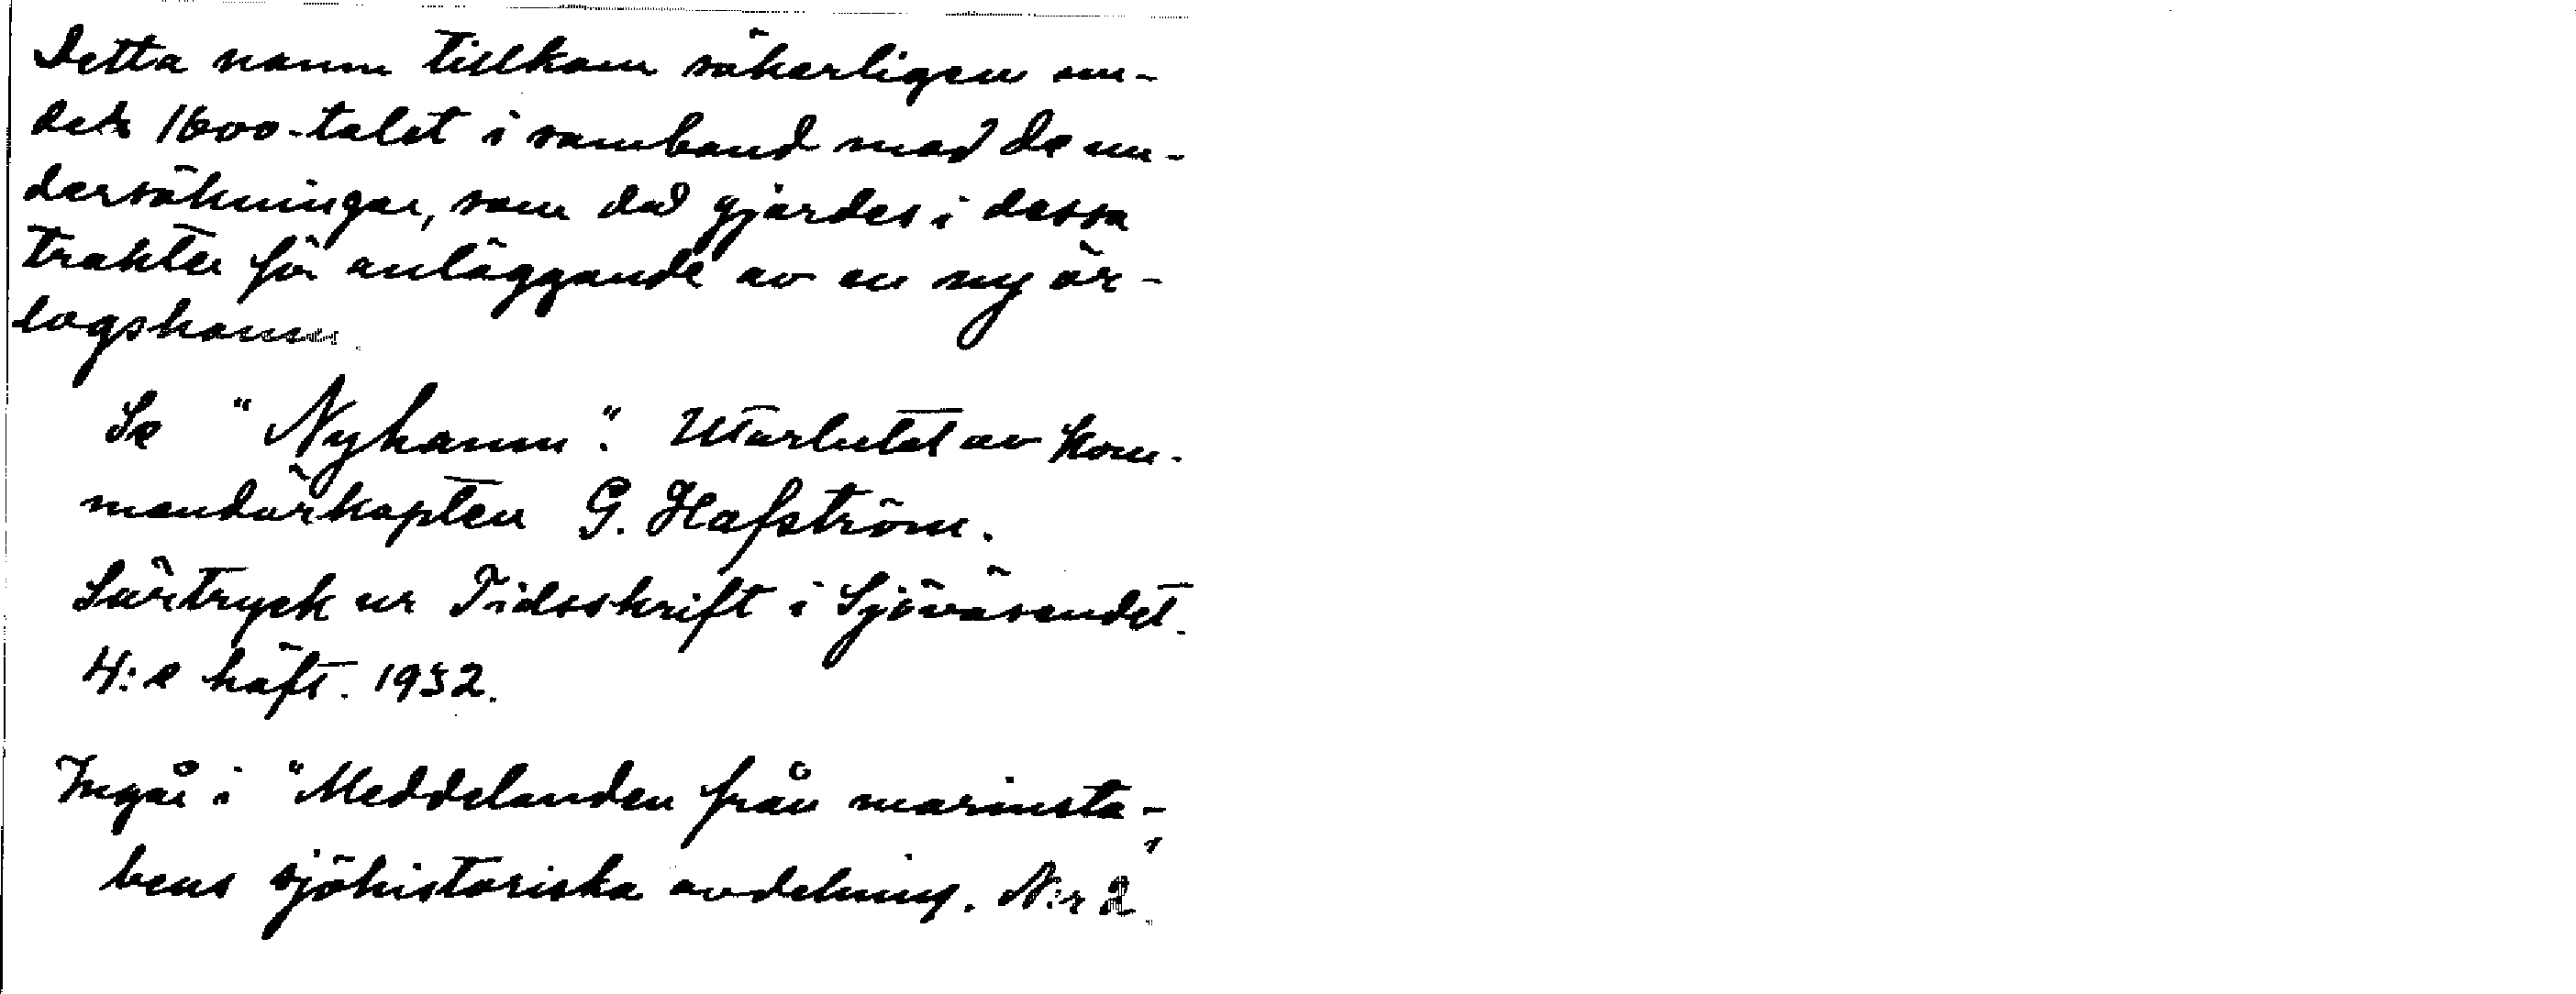 Detta namn tillkom säkerligen un-
der 1600-talet i samband med de un-
dersökningar, som då gjordes i dessa
trakter för anläggande av en ny ör-
logshamn.
Se "Nyhamn". Utarbetat av Kom-
mendörkapten G. Hafström.
Särtryck ur Tidsskrift i Sjöväsendet.
4:e häft. 1932.
Ingår i "Meddelanden från marinsta-
bens sjöhistoriska avdelning. N:r 2".